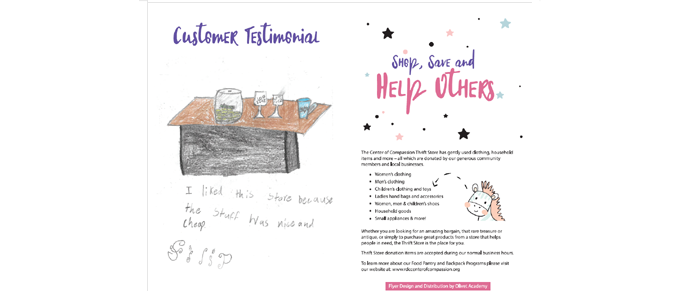 Customer Testimonial
I liked this store because
the stuff was nice and
cheap
Shop, Save and
Help Others
The Center of Compassion Thrift Store has gently used clothing, household
items and more – all which are donated by our generous community
members and local businesses.
• Women's clothing
• Men's clothing
• Children's clothing and toys
• Ladies hand bags and accessories
• Women, men & children's shoes
• Household goods
• Small appliances & more!
Whether you are looking for an amazing bargain, that rare treasure or
antique, or simply to purchase great products from a store that helps
people in need, the Thrift Store is the place for you.
Thrift Store donation items are accepted during our normal business hours.
To learn more about our Food Pantry and Backpack Programs please visit
our website at: www.rdccenterofcompassion.org
Flyer Design and Distribution by Olivet Academy